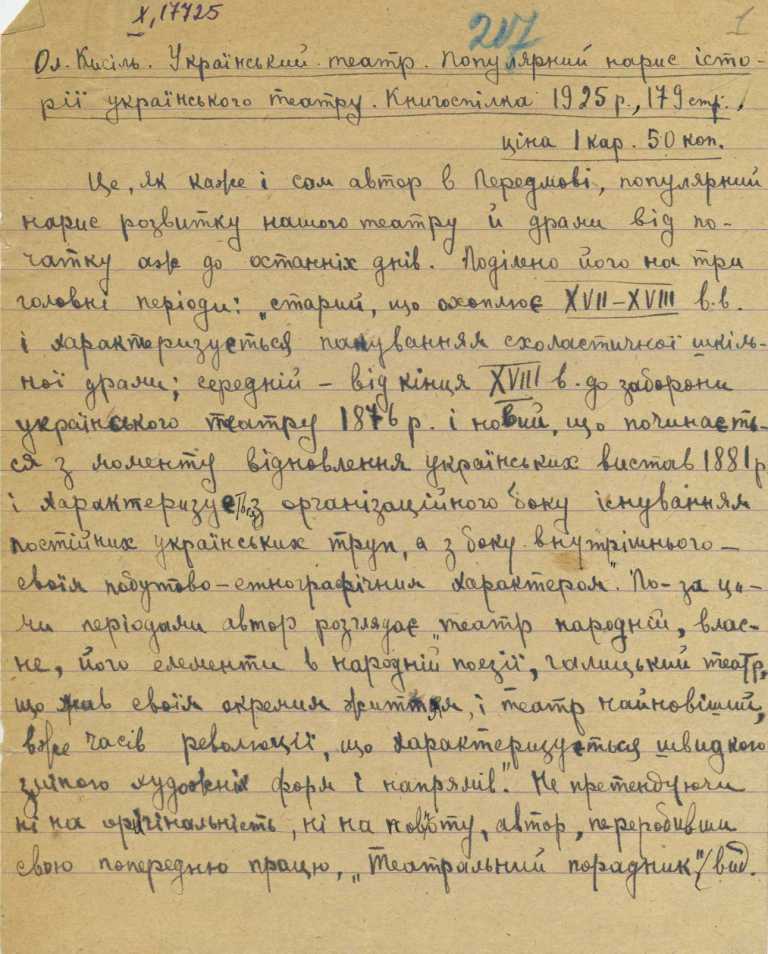 X, 17725
207
1
Ол. Кисіль. Український театр. Популярний нарис істо-
рії українського театру. Книгоспілка 1925 р., 179 стр.,
ціна 1 кар. 50 коп.
Це, як каже і сам автор в Передмові, популярний
нарис розвитку нашого театру й драми від по-
чатку аж до останніх днів. Поділено його на три
головні періоди: „старий, що охоплює XVII–XVIII в.в.
і характеризується пануванням схоластичної шкіль-
ної драми; середній – від кінця XVIII в. до заборони
українського театру 1876 р. і новий, що починаєть-
ся з моменту відновлення українських вистав 1881 р
і характеризується з організаційного боку існуванням
постійних українських труп, а з боку внутрішнього –
своїм побутово-етнографічним характером". По-за ци-
ми періодами автор розглядає „театр народній, влас-
не, його елементи в народній поезії, галицький театр,
що жив своїм окремим життям, і театр найновіший,
вже часів революції, що характеризується швидкою
зміною художніх форм і напрямів". Не претендуючи
ні на оригінальність, ні на новоту, автор, переробивши
свою попередню працю, „Театральний порадник" (вид.